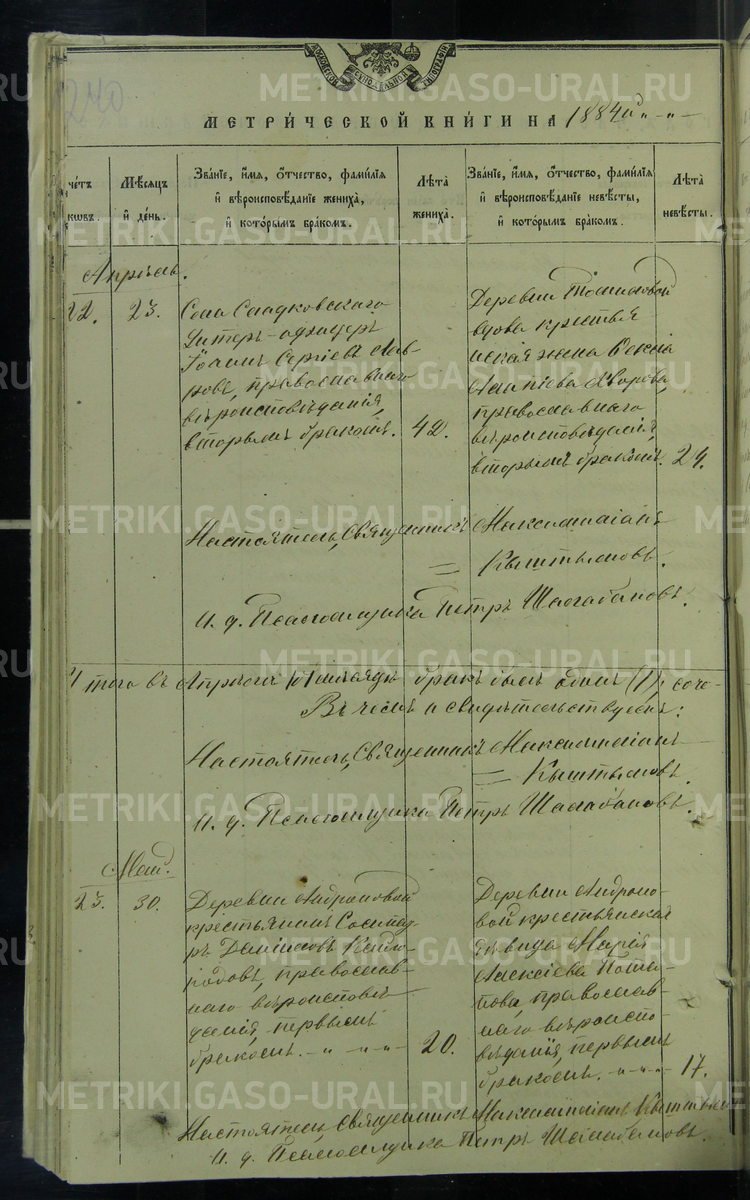 240
МЕТРИ́ЧЕСКОЙ КНИ́ГИ НА 1884й д
че́тъ
ковъ.
Мѣсяцъ
и҆ де́нь.
Зва́нїе, и҆́мя, о҆́тчество, фами́лїя
и҆ вѣроисповѣ́данїе жениха̀,
и҆ кото́рымъ бра́комъ.
Лѣ́та
жениха̀.
Зва́нїе, и҆́мя, о҆́тчество, фами́лїя
и҆ вѣроисповѣ́данїе невѣ́сты,
и҆ кото́рымъ бра́комъ.
Лѣ́та
невѣ́сты.
Апрѣль.
22.
23.
Села Сладковскаго
Унтеръ-офицеръ
Іоаннъ Сергіевъ Лав-
ровъ, православнаго
вѣроисповѣданія,
вторымъ бракомъ.
42.
Деревни
вдова крестья
нская жена
Уварова,
православнаго
вѣроисповѣданія,
вторымъ бракомъ.
24.
Настоятель, Священникъ Максимиліанъ
Кыштымовъ.
И. д. Псаломщика Петръ Шалабановъ.
того въ Апрѣлѣ мѣсяцѣ бракъ былъ одинъ (1);
Въ чемъ и свидѣтельствуемъ:
Настоятель, Священникъ Максимиліанъ
Кыштымовъ.
И. д. Псаломщика Петръ Шалабановъ.
Май.
23.
30.
Деревни Андроновой
крестьянинъ
Даніиловъ Кайго-
родовъ, православ-
наго вѣроисповѣ
данія, первымъ
бракомъ.
20.
Деревни Андроно-
вой крестьянская
дѣвица Марія
Алексіева Пота-
пова, православ-
наго вѣроиспо-
вѣданія, первымъ
бракомъ.
17.
Настоятель, Священникъ Максимиліанъ Кыштымовъ
И. д. Псаломщика Петръ Шалабановъ.
METRIKI.GASO-URAL.RU